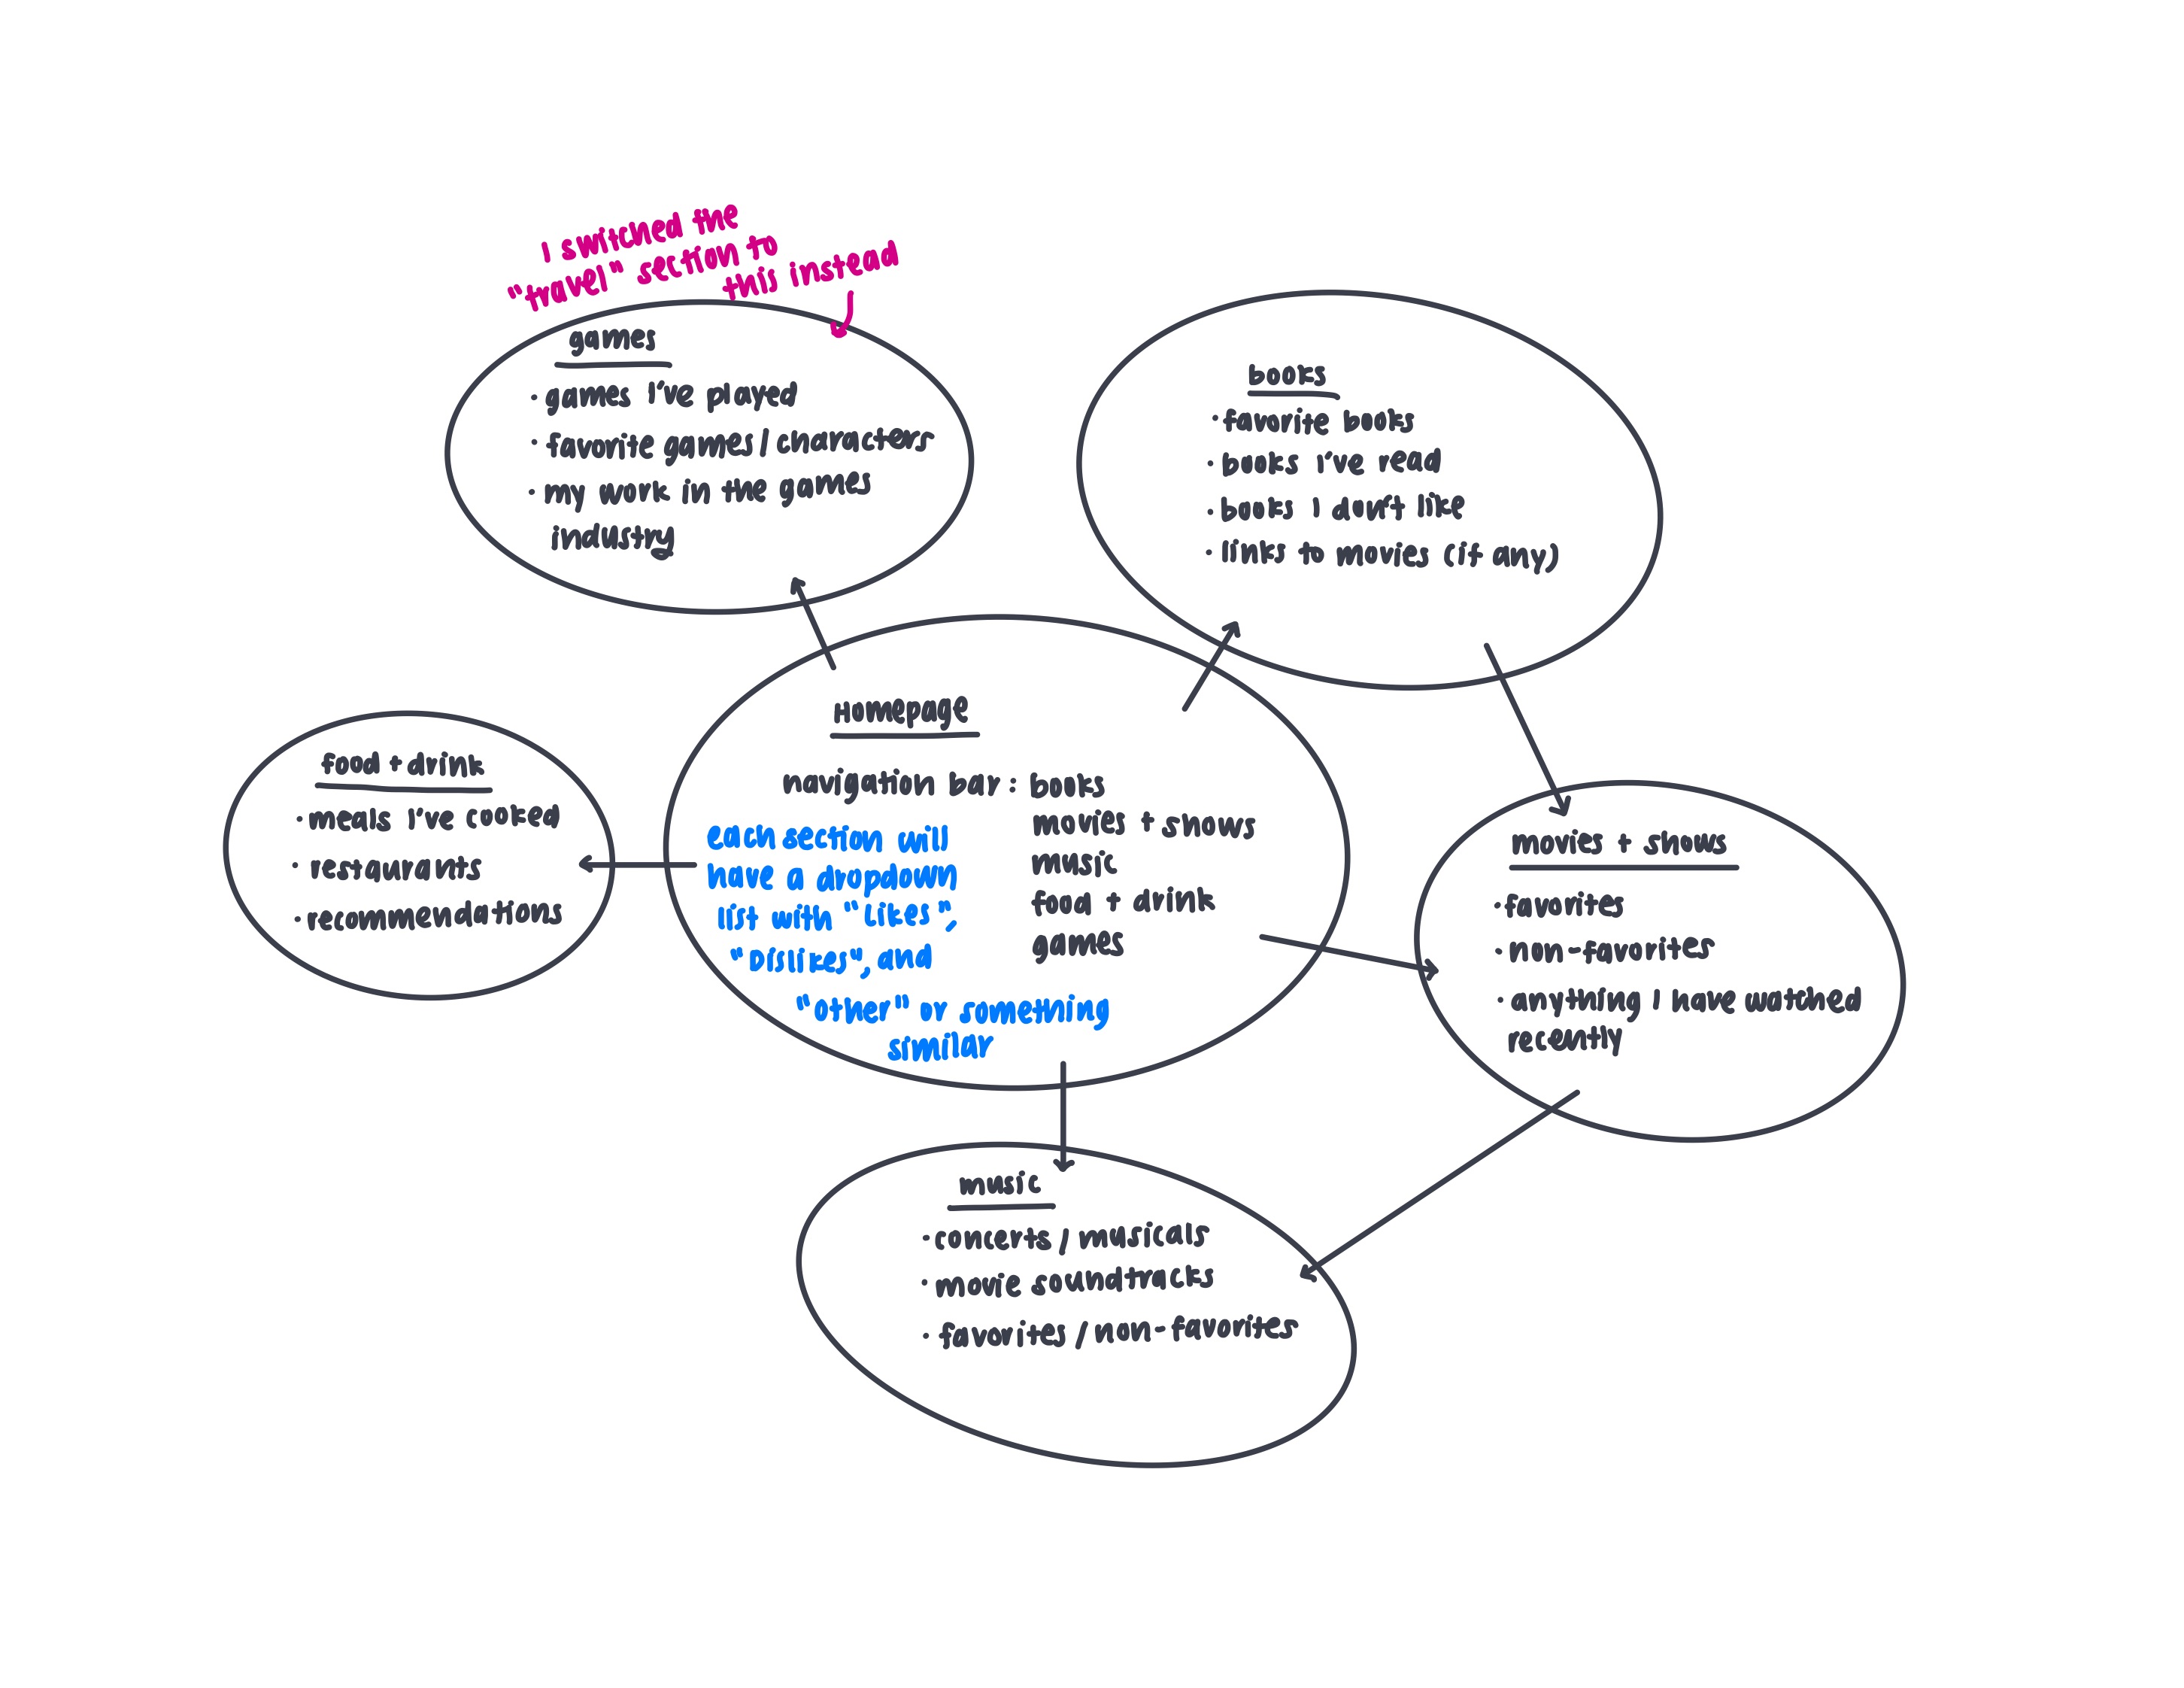 I switched the
"travel" section to
this instead
games
· games I've played
· favorite games / characters
· my work in the games
industry
books
· favorite books
· books I've read
· books I don't like
· links to movies (if any)
Homepage
navigation bar: books
movies + shows
music
food + drink
games
each section will
have a dropdown
list with "Likes",
"Dislikes", and
"other" or something
similar
food + drink
· meals I've cooked
· restaurants
· recommendations
movies + shows
· favorites
· non-favorites
· anything I have watched
recently
music
· concerts / musicals
· movie soundtracks
· favorites / non-favorites